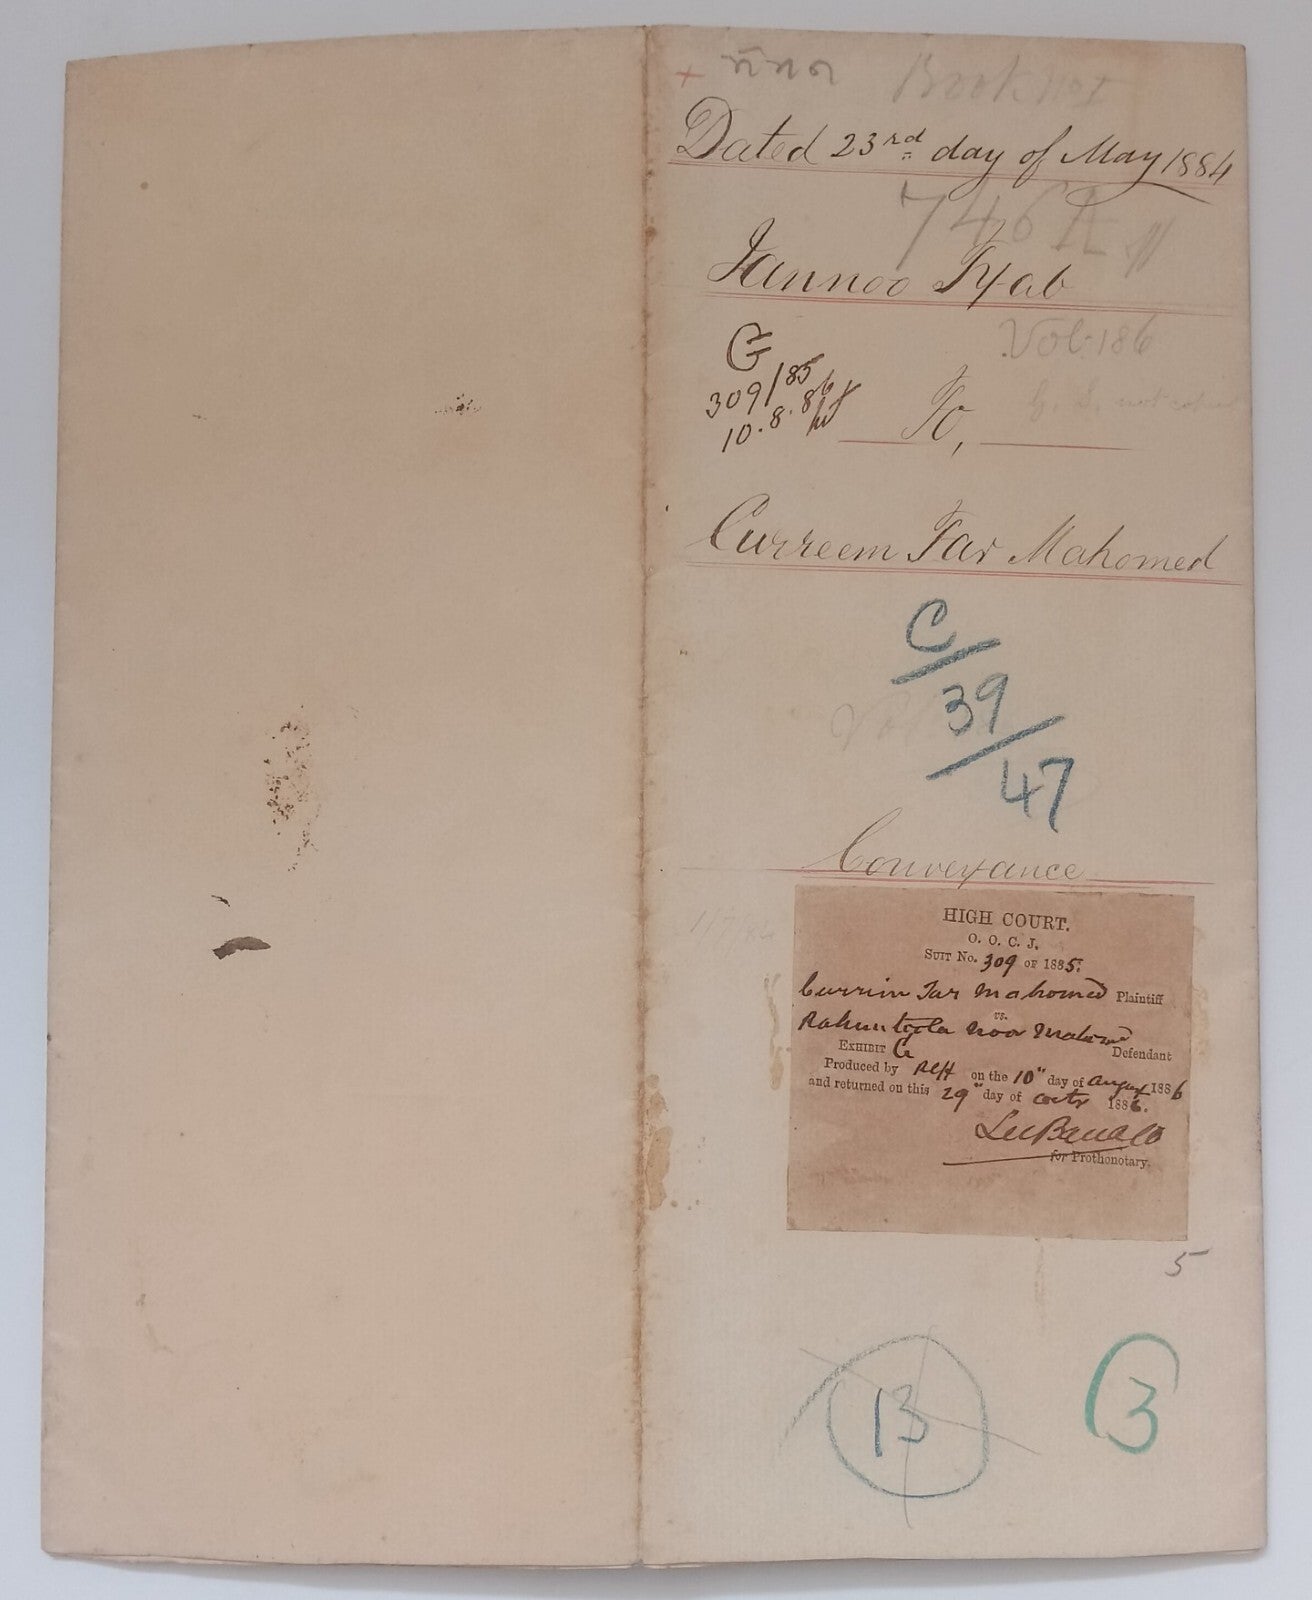 Book No 1
Dated 23rd day of May 1884
746 A
Jannoo Tyab
Vol. 186
G
309/85
10.8.86
To,
G. S. not
Curreem Jar Mahomed
C/39/47
Conveyance
HIGH COURT.
O. O. C. J.
SUIT No. 309 OF 1885.
Currim Jar Mahomed Plaintiff
vs.
Noor Mahomd Defendant
EXHIBIT G
Produced by on the 10" day of August 1886
and returned on this 29" day of Octr 1886.
for Prothonotary.
5
13
3